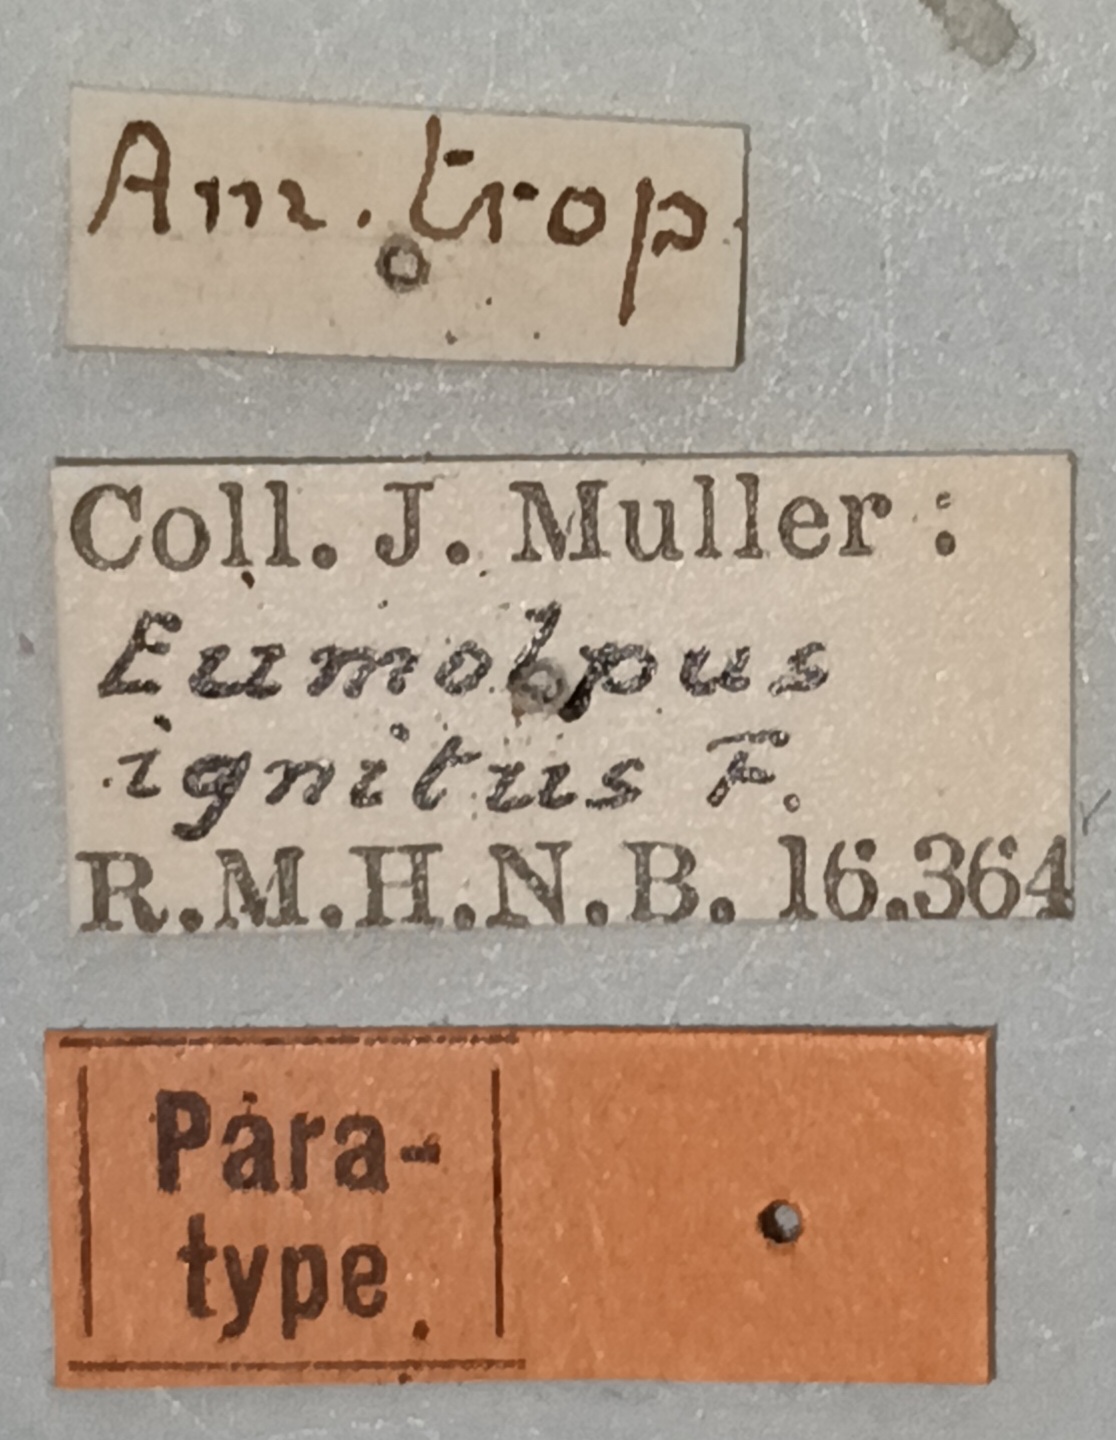 Am. trop.
Coll. J. Muller :
Eumolpus
ignitus F.
R.M.H.N.B. 16.364
Para-
type